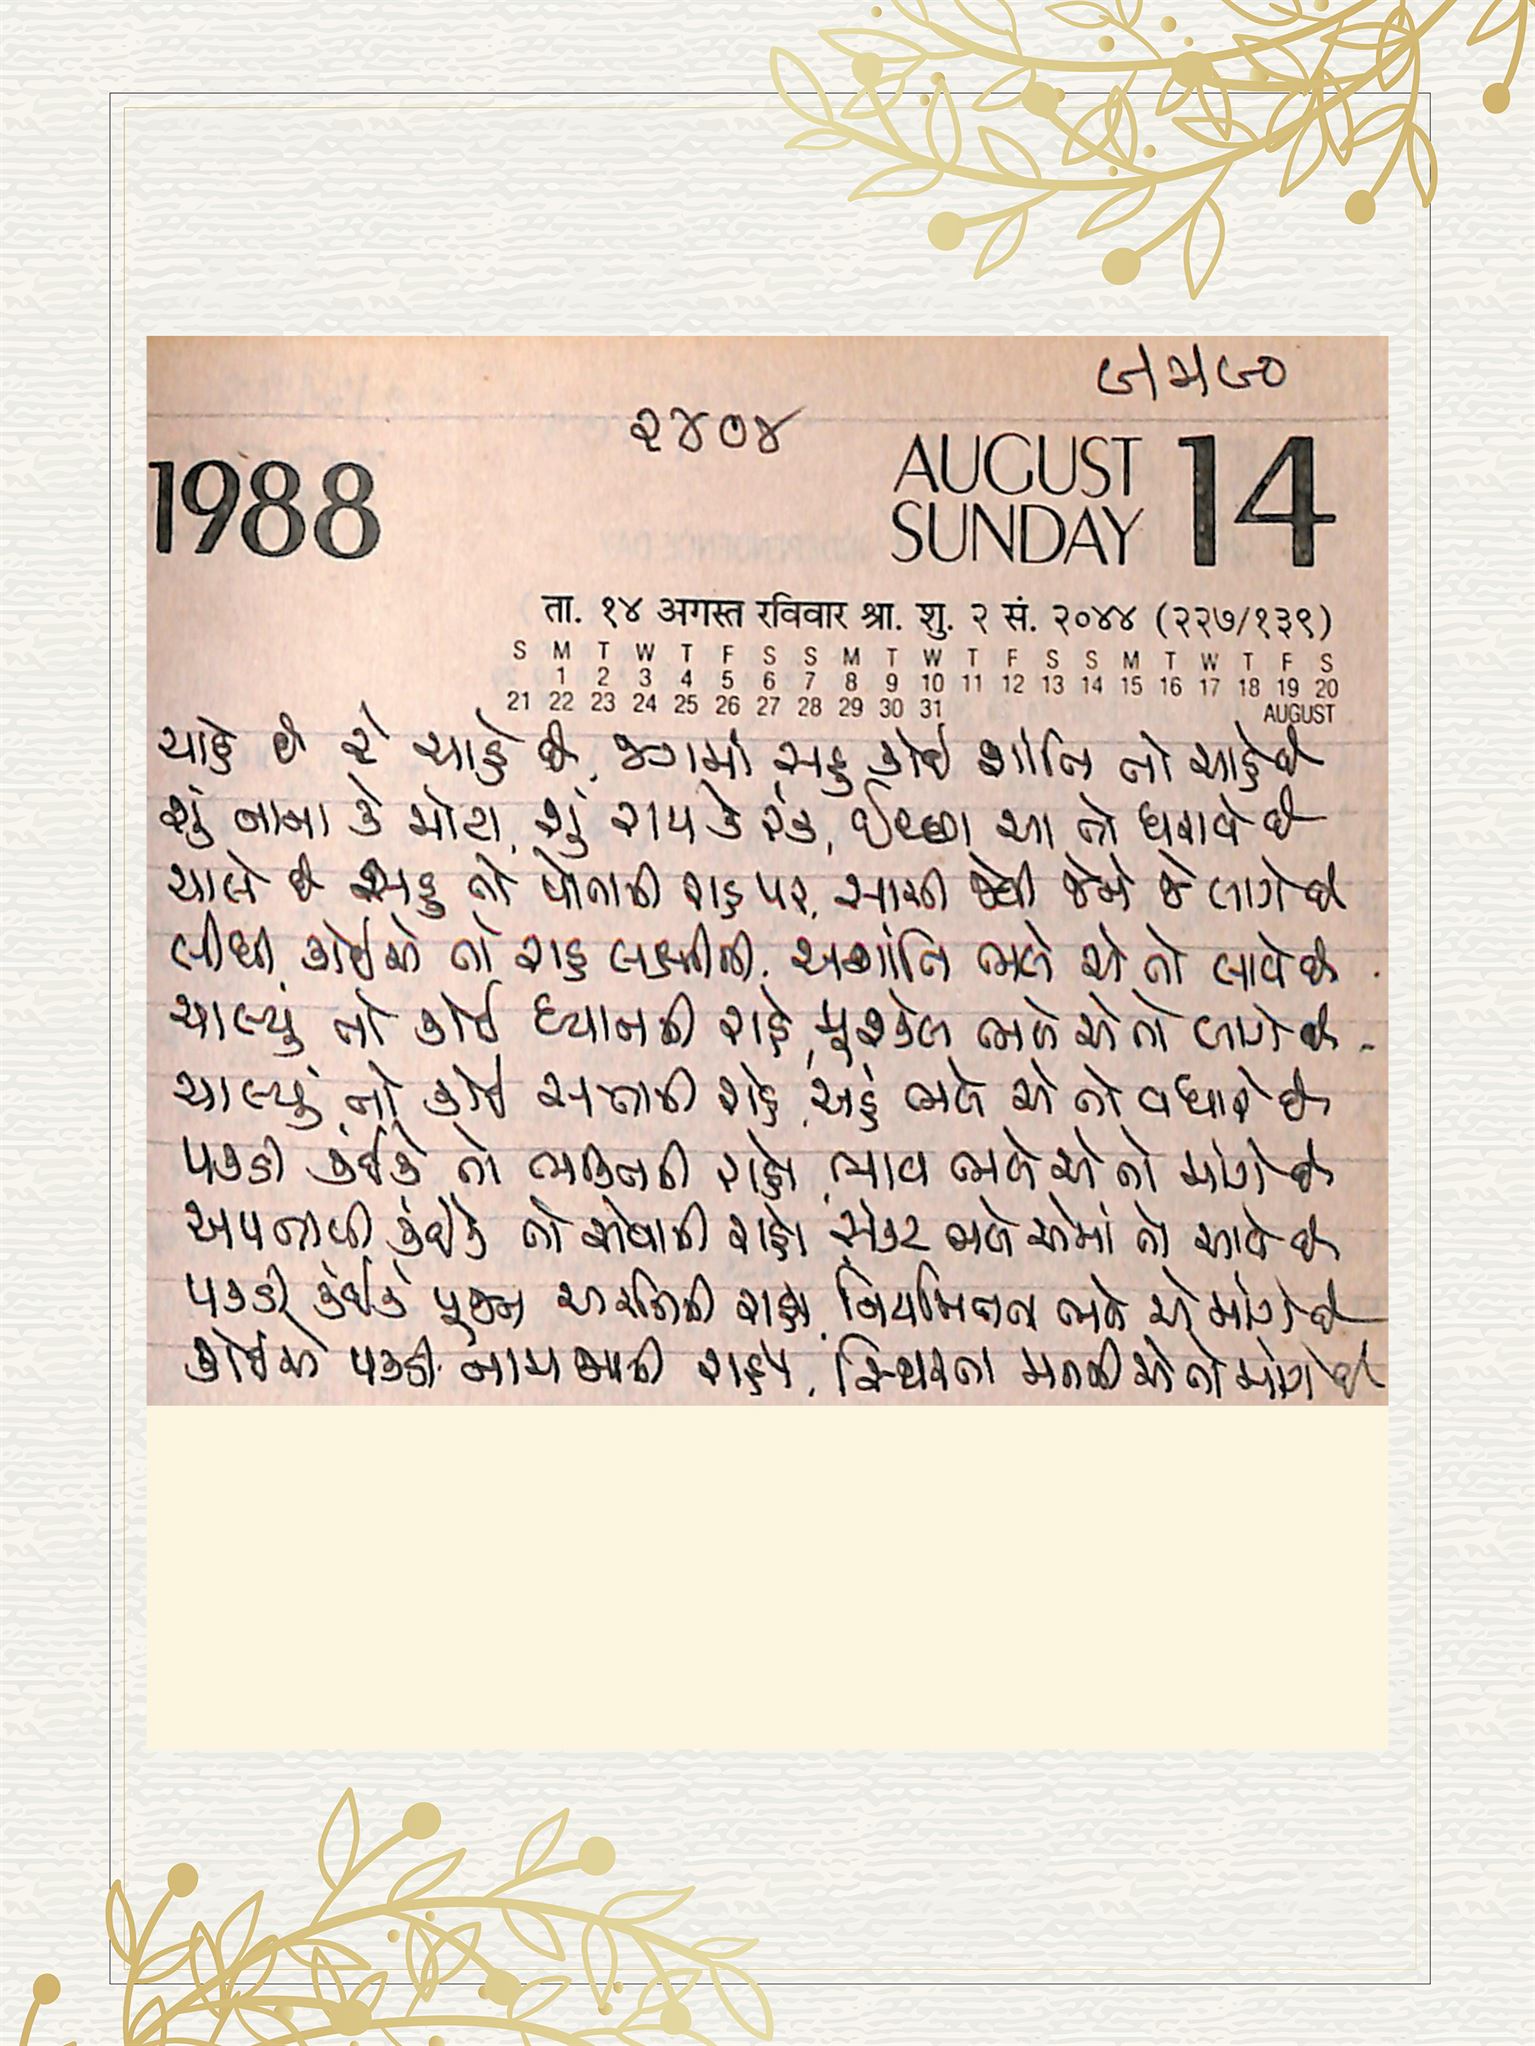 જમજ૦
૨૪૦૪
1988
AUGUST
SUNDAY
14
ता. १४ अगस्त रविवार श्रा. शु. २ सं. २०४४ (२२७/१३९)
S M T W T F S S M T W T F S S M T W T F S
1 2 3 4 5 6 7 8 9 10 11 12 13 14 15 16 17 18 19 20
21 22 23 24 25 26 27 28 29 30 31
AUGUST
ચાહે છે રે ચાહે છે, જગમાં સહુ કોઈ શાંતિ તો ચાહે છે
શું નાના કે મોટા, શું રાય કે રંક, ઈચ્છા આ તો ધરાવે છે
ચાલે છે સહુ તો પોતાની રાહ પર, સારી જેવી જેને જે લાગે છે
લીધી કોઈએ તો રાહ લક્ષ્મીની, અશાંતિ ભલે એ તો લાવે છે
ચાલ્યું તો કોઈ ધ્યાનની રાહે, મુશ્કેલ ભલે એ તો લાગે છે
ચાલ્યું તો કોઈ સત્તાની રાહે, અહં ભલે એ તો વધારે છે
પકડી કંઈકે તો ભક્તિની રાહો, ભાવ ભલે એ તો માંગે છે
અપનાવી કંઈકે તો સેવાની રાહો, સંકટ ભલે એમાં તો આવે છે
પકડી કંઈકે પૂજન આરતીની રાહો, નિયમિતતા ભલે એ માંગે છે
કોઈએ પકડી નામ જપની રાહ, સ્થિરતા મનની એ તો માંગે છે